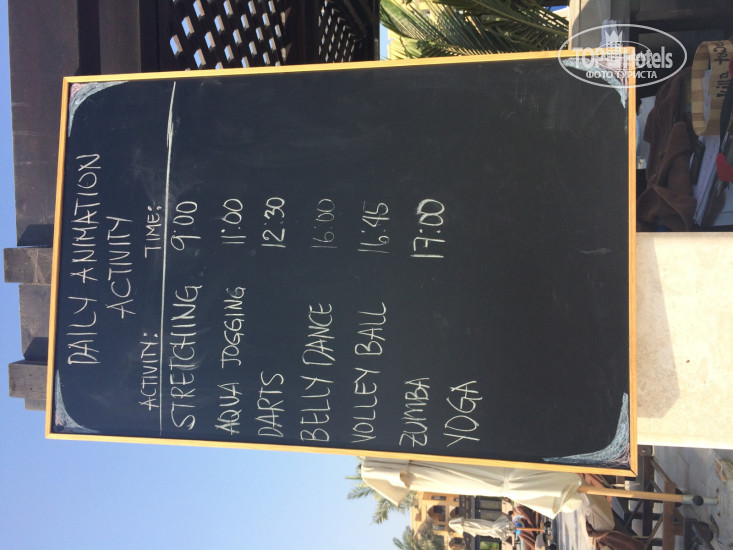 DAILY ANIMATION
ACTIVITY
ACTIVITY: TIME:
STRETCHING 9:00
AQUA JOGGING 11:00
DARTS 12:30
BELLY DANCE 16:00
VOLLEY BALL 16:45
ZUMBA 17:00
YOGA
TOPHotels
ФОТО ТУРИСТА